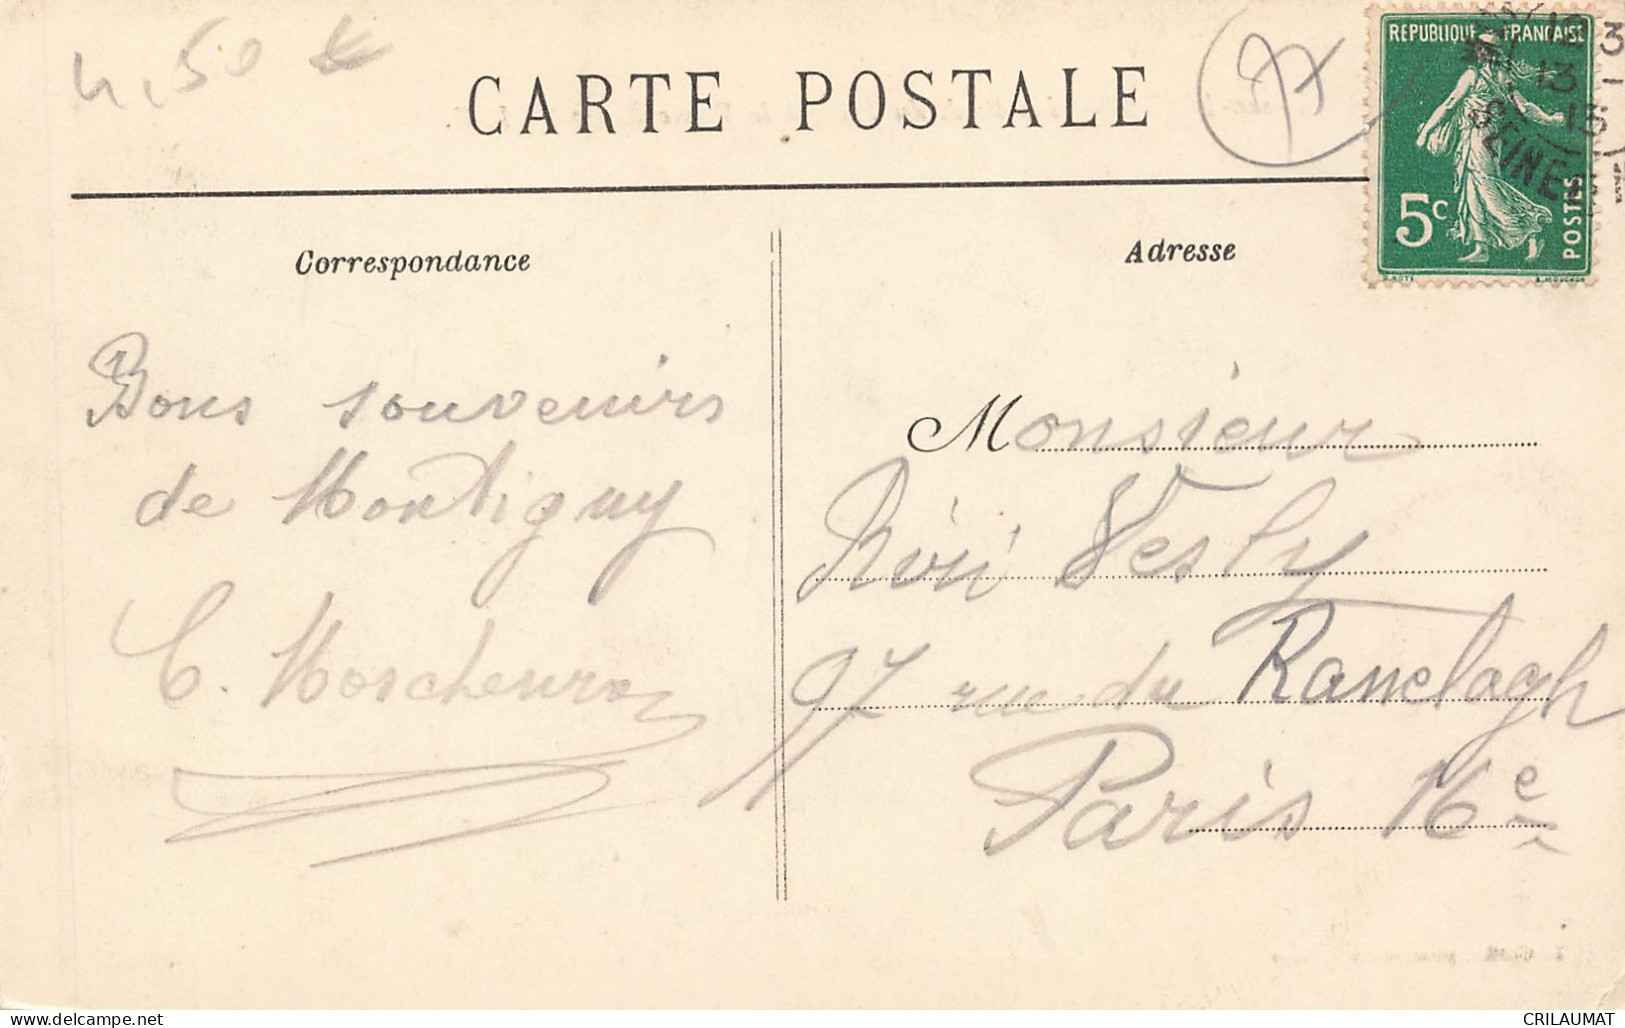 4,50 €
CARTE POSTALE
97
REPUBLIQUE FRANCAISE
12 3
13 -
15
SEINE
5c
POSTES
Correspondance
Adresse
Bons souvenirs
de Montigny
Monsieur
Vesly
97 rue du Ranelagh
Paris 16e
www.delcampe.net
CRILAUMAT